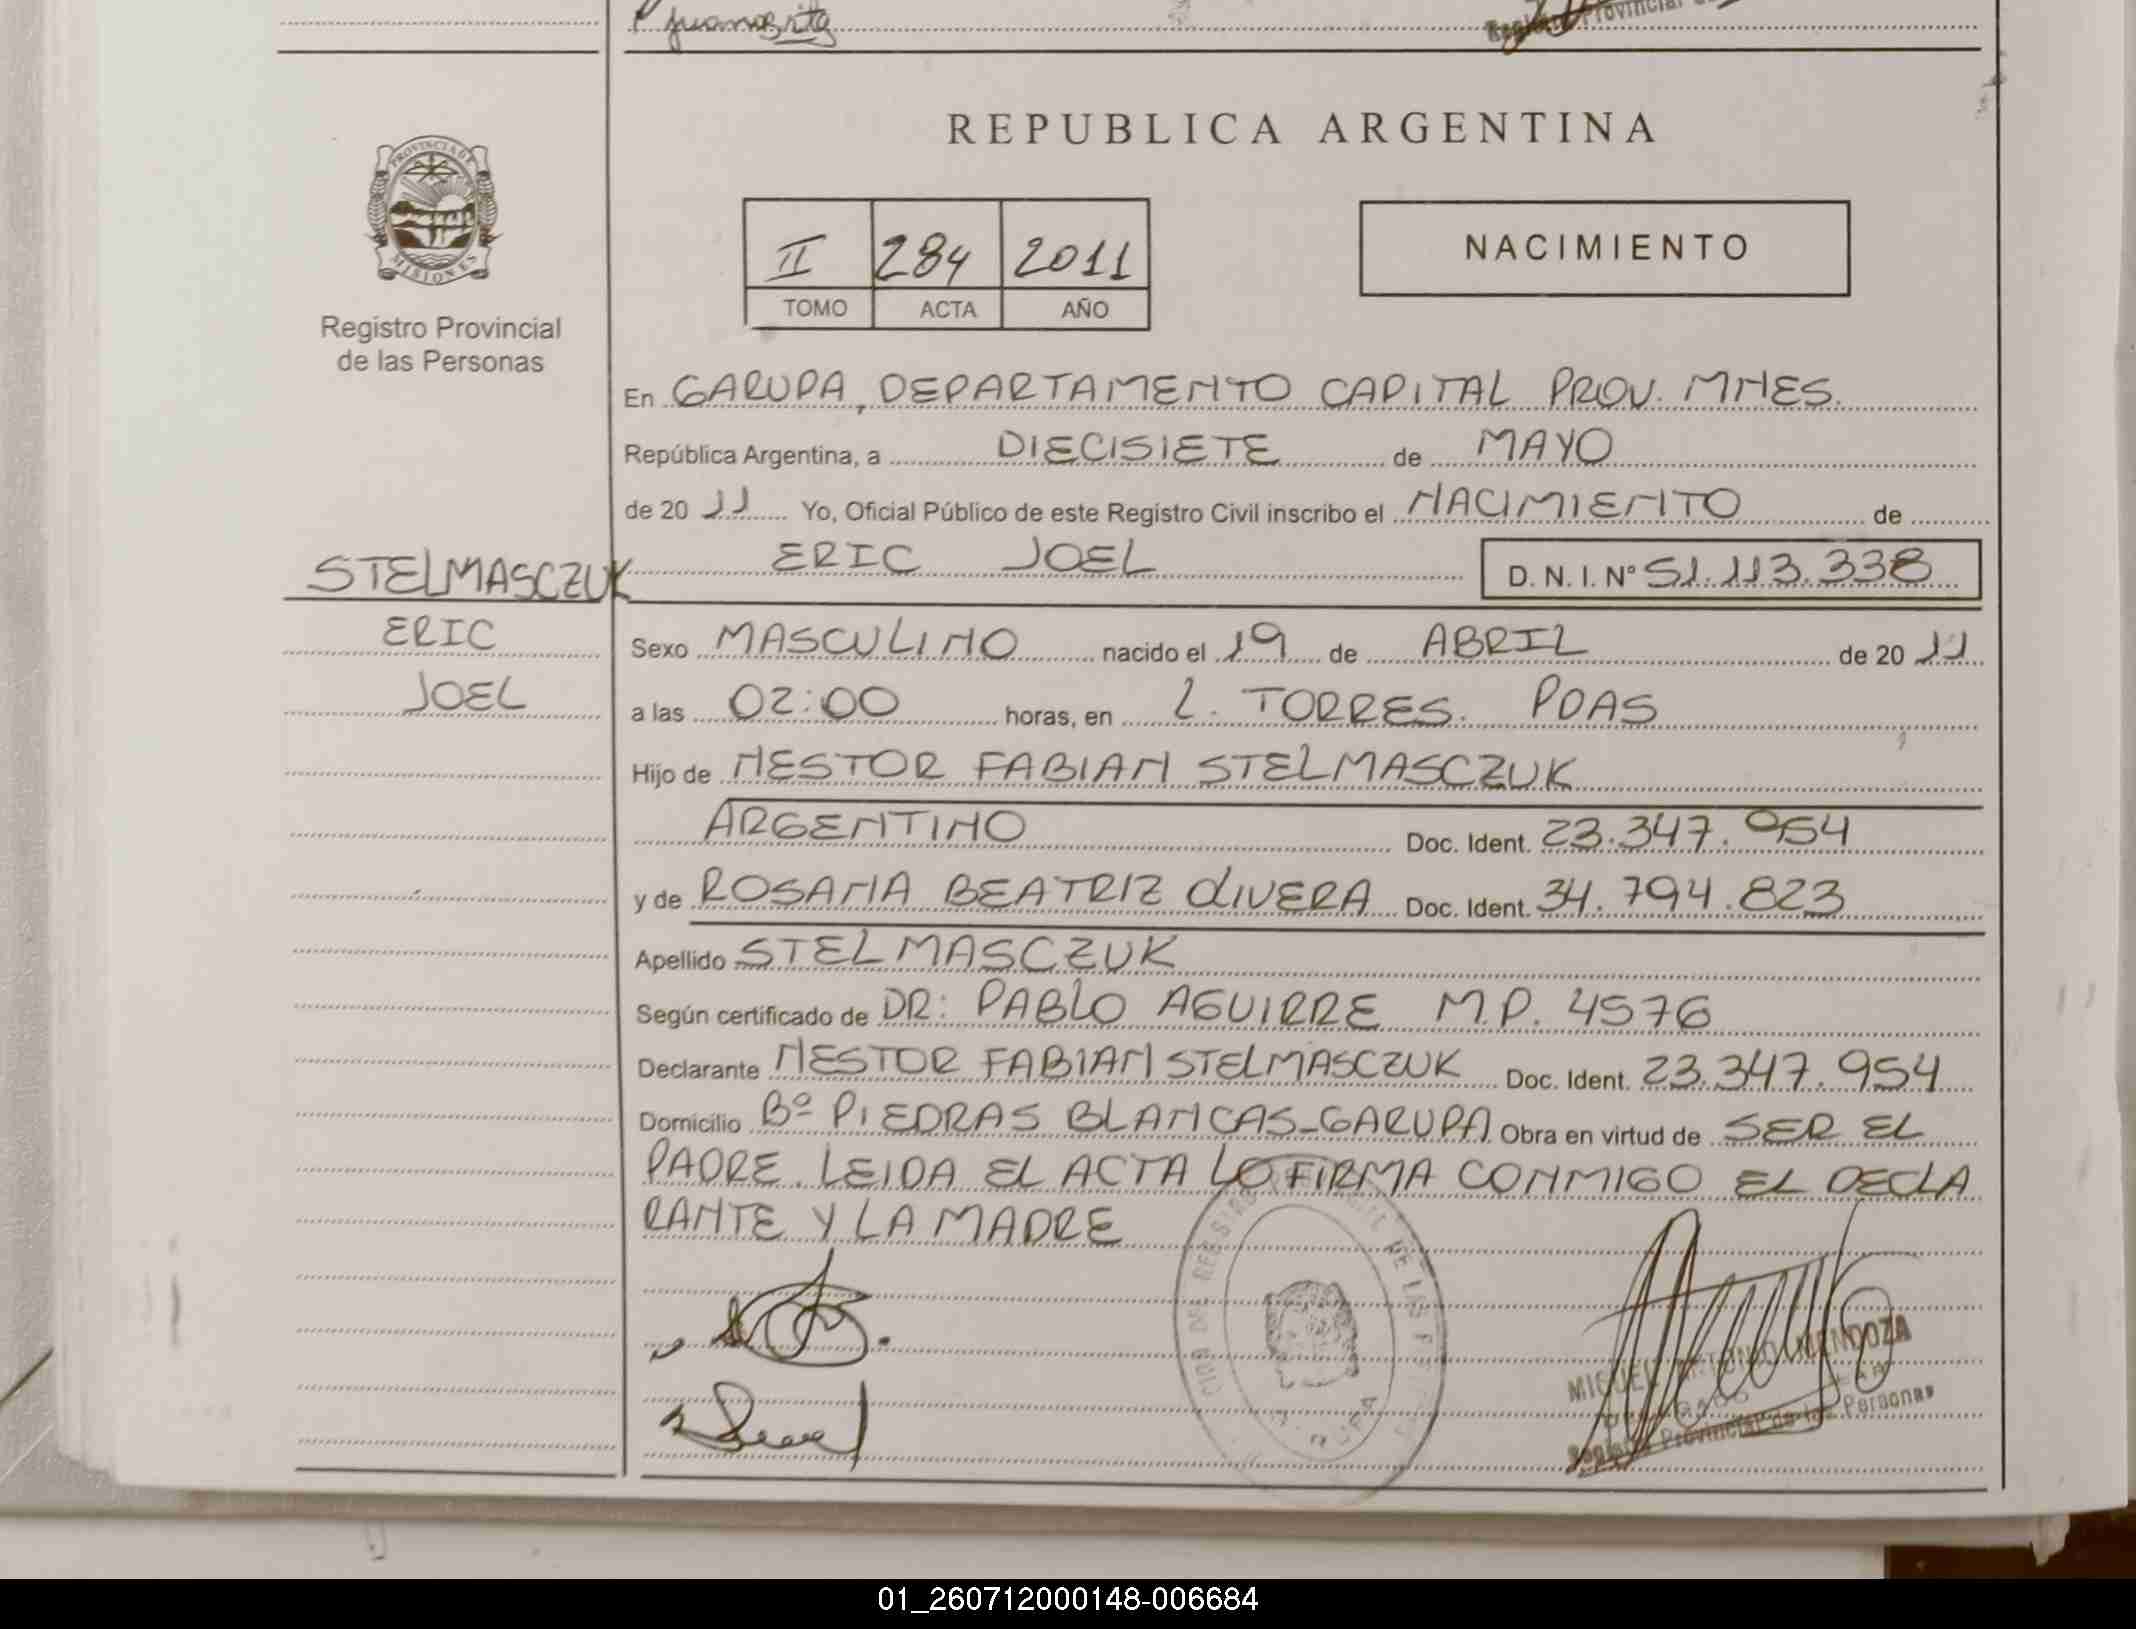 REPUBLICA ARGENTINA
PROVINCIA DE
MISIONES
Registro Provincial
de las Personas
II 284 2011
TOMO ACTA AÑO
NACIMIENTO
En GARUPA, DEPARTAMENTO CAPITAL PROV. MNES.
República Argentina, a DIECISIETE de MAYO
de 20 11 Yo, Oficial Público de este Registro Civil inscribo el NACIMIENTO de
ERIC JOEL D. N. I. Nº 51.113.338
STELMASCZUK
ERIC
JOEL
Sexo MASCULINO nacido el 19 de ABRIL de 20 11
a las 02:00 horas, en L. TORRES. PDAS
Hijo de NESTOR FABIAN STELMASCZUK
ARGENTINO Doc. Ident. 23.347.954
y de ROSANA BEATRIZ OLIVERA Doc. Ident. 34.794.823
Apellido STELMASCZUK
Según certificado de DR: PABLO AGUIRRE M.P. 4576
Declarante NESTOR FABIAN STELMASCZUK Doc. Ident. 23.347.954
Domicilio Bº PIEDRAS BLANCAS-GARUPA Obra en virtud de SER EL
PADRE. LEIDA EL ACTA LO FIRMA CONMIGO EL DECLA
RANTE Y LA MADRE
MIGUEL ANTONIO MENDOZA
Registro Provincial de las Personas
01_260712000148-006684